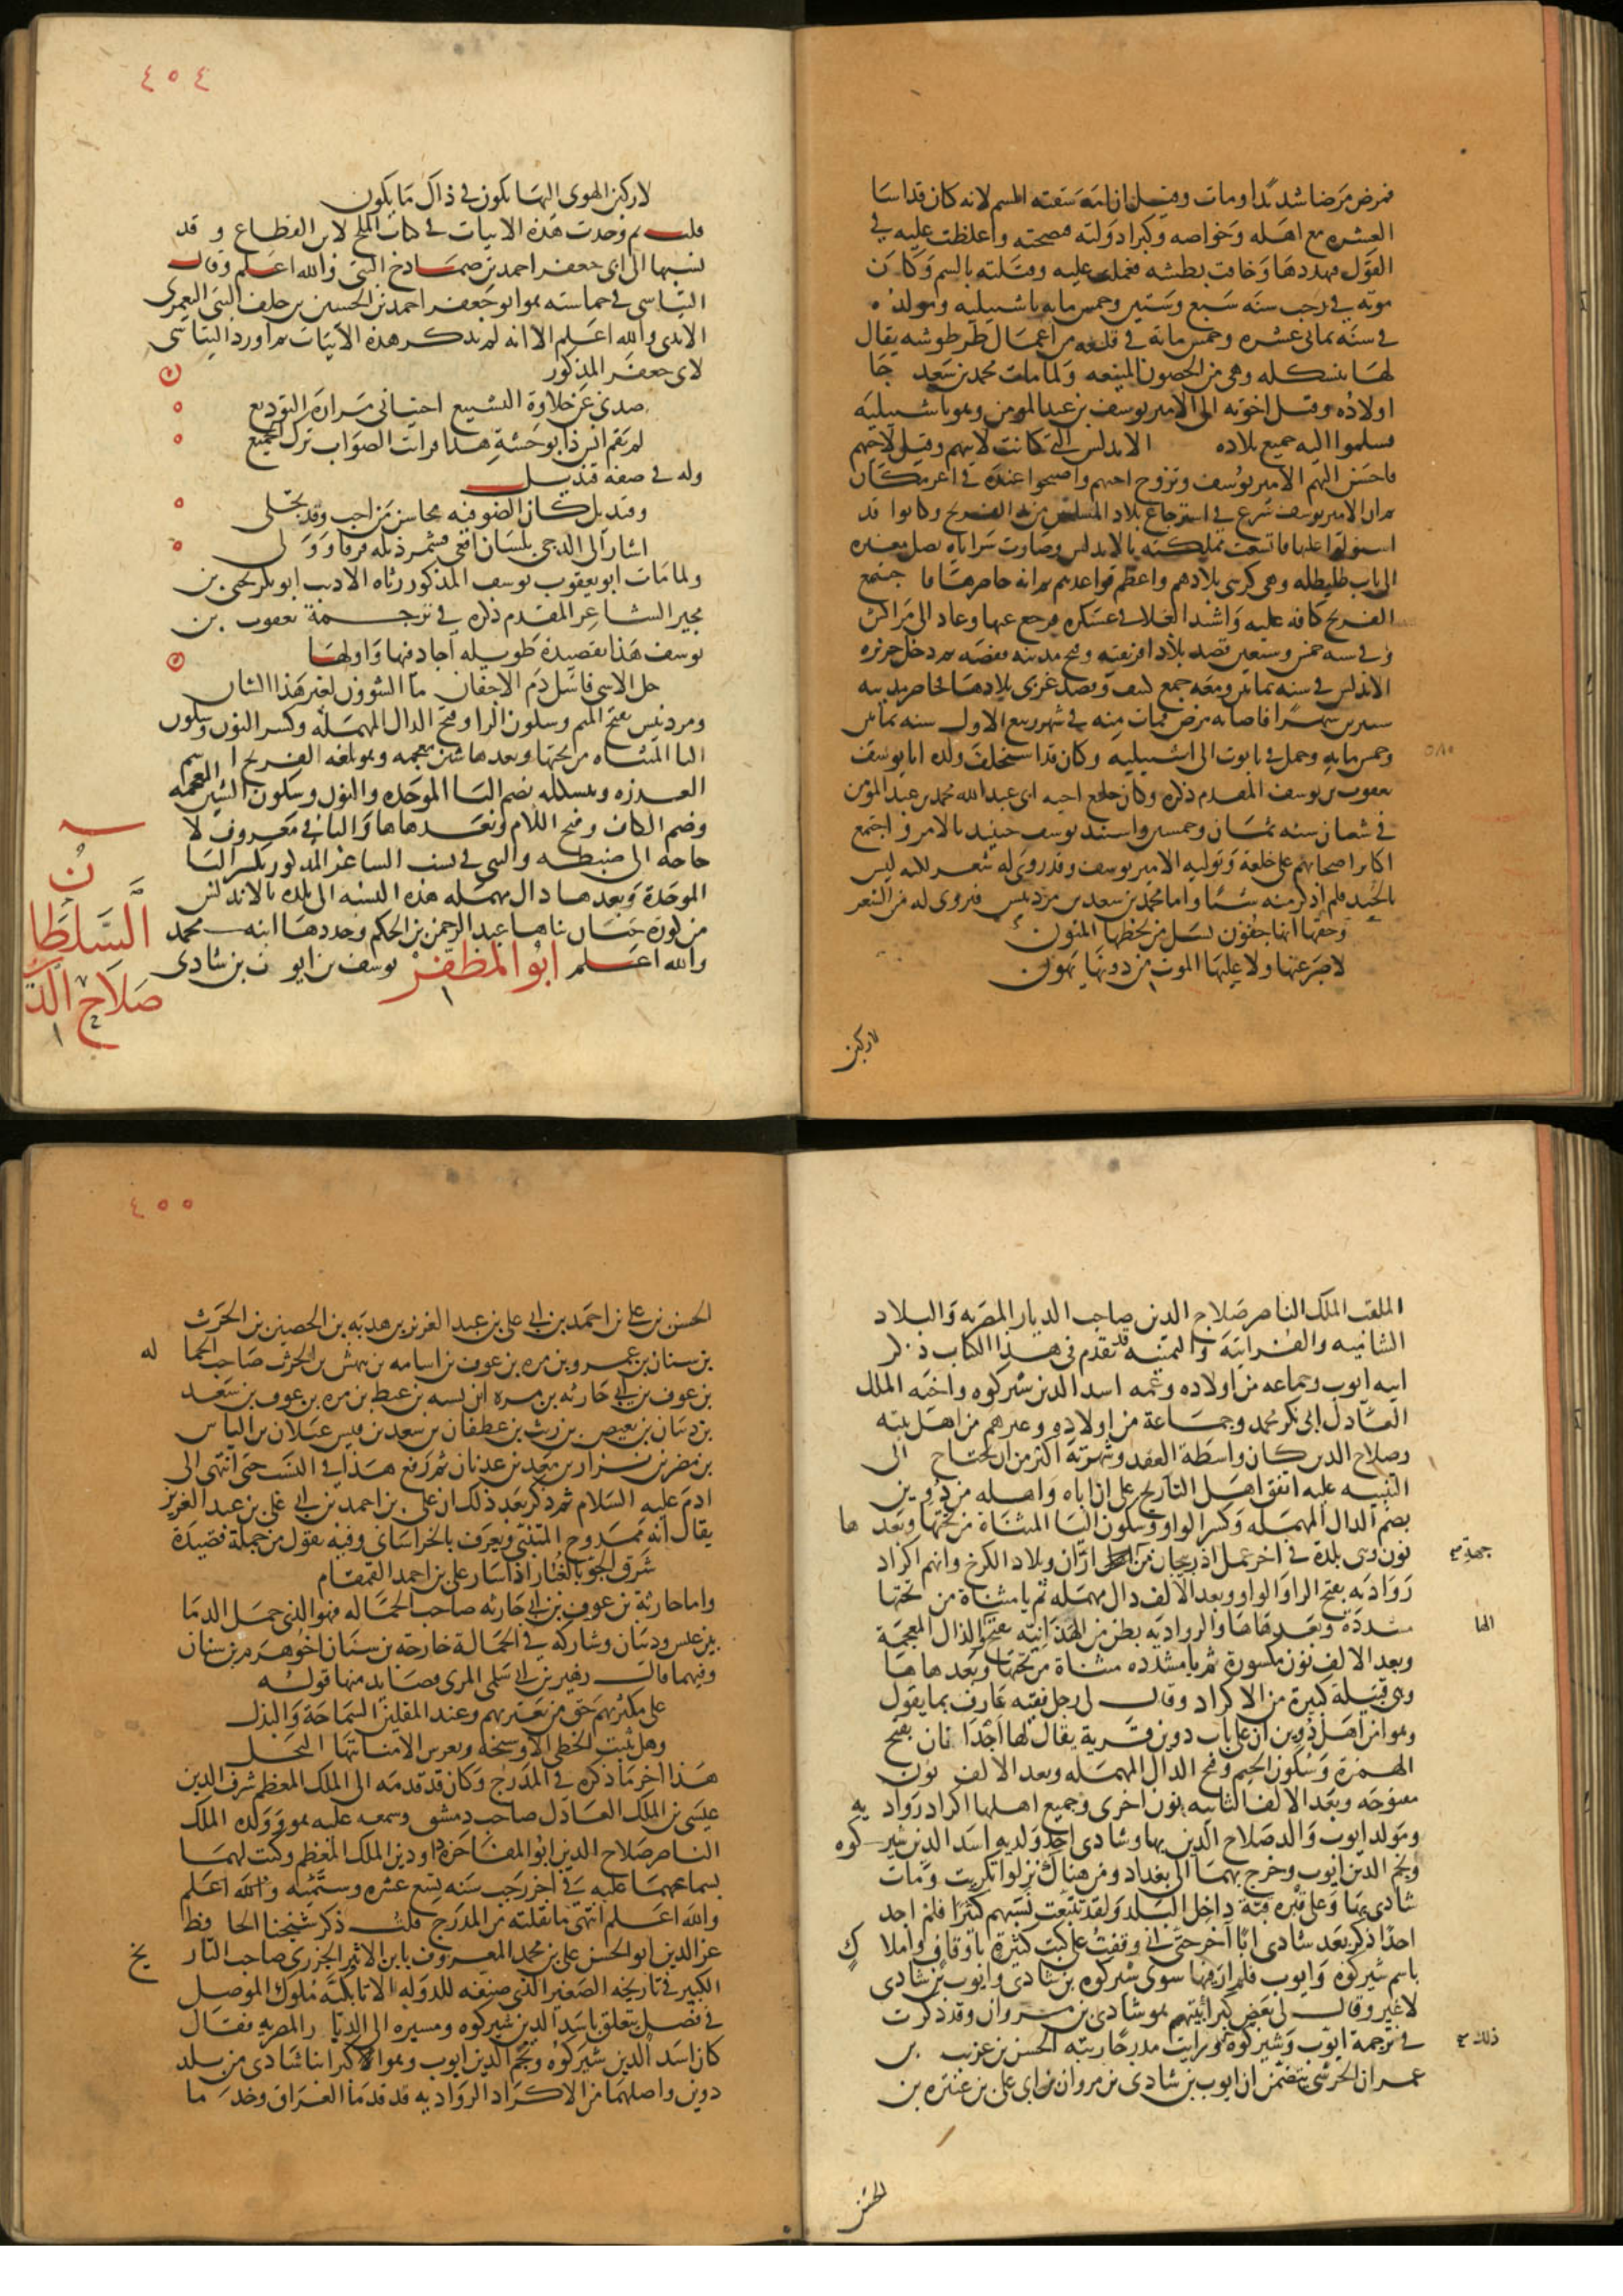 فمرض مرضا شديدا ومات وقيل ان امه سقته السم لانه كان قد اسا
العشره مع اهله وخواصه وكبرا دولته فنصحته واغلظت عليه في
القول فهددها وخافت بطشه فعملت عليه وقتلته بالسم وكان
موته في رجب سنه سبع وستين وخمس مايه باشبيليه ومولده
في سنة ثماني عشره وخمس مائة في قلعه من اعمال طرطوشه يقال
لها بنشكله وهي من الحصون المنيعه ولما مات محمد بن سعد جا
اولاده وقيل اخوته الى الامير يوسف بن عبد المومن وهو باشبيليه
فسلموا اليه جميع بلاده الاندلس التي كانت لابيهم وقيل لاخيهم
فاحسن اليهم الامير يوسف وتزوج اختهم واصبحوا عنده في اعز مكان
ثم ان الامير يوسف شرع في استرجاع بلاد المسلمين من يد الفرنج وكانوا قد
استولوا عليها فاتسعت مملكته بالاندلس وصارت سراياه تصل مغيره
الى باب طليطله وهي كرسي بلادهم واعظم قواعدهم ثم انه حاصرها فاجتمع
الفرنج كافه عليه واشتد الغلا في عسكره فرجع عنها وعاد الى مراكش
وفي سنه خمس وسبعين قصد بلاد افريقيه وفتح مدينه قفصه ثم دخل جزيره
الاندلس في سنه ثمانين ومعه جمع كثيف وقصد غربي بلادها فحاصر مدينه
شنترين شهرا فاصابه مرض فمات منه في شهر ربيع الاول سنه ثمانين
٥٨٠
وخمس مايه وحمل في تابوت الى اشبيليه وكان قد استخلف ولده ابا يوسف
يعقوب بن يوسف المقدم ذكره وكان خلع اخيه ابي عبد الله محمد بن عبد المؤمن
في شعبان سنه ثمان وخمسين واستبد يوسف حينئذ بالامر واجتمع
اكابر اصحابهم على خلعه وتوليه الامير يوسف وقد روى له شعر لكنه ليس
بالجيد فلم اذكر منه شيئا واما محمد بن سعد بن مردنيش فيروى له من الشعر
وحقها انها جفون يسل من لحظها المنون
لا صبر عنها ولا عليها الموت من دونها يهون
لاركبن
٤٥٤
لاركبن الهوى اليها يكون في ذاك ما يكون
قلت ثم وجدت هذه الابيات في كتاب الملح لابن القطاع وقد
نسبها الى ابي جعفر احمد بن صمادح البني والله اعلم وقال
البياسي في حماسته هو ابو جعفر احمد بن الحسين بن خلف البني اليعمري
الابدي والله اعلم الا انه لم يذكر هذه الابيات ثم اورد البياسي
لابي جعفر المذكور
صدني عن حلاوة التشييع اجتنابي مرارة التوديع
لم يقم انس ذا بوحشة هذا فرايت الصواب ترك الجميع
وله في صفة قنديل
وقنديل كان الضو فيه محاسن من احب وقد تجلى
اشار الى الدجى بلسان افعى فشمر ذيله فرقا وولى
ولما مات ابو يعقوب يوسف المذكور رثاه الاديب ابو بكر يحيى بن
مجير الشاعر المقدم ذكره في ترجمة يعقوب بن
يوسف هذا بقصيدة طويله اجاد فيها واولها
جل الاسى فاسل دم الاجفان ما الشؤون لغير هذا الشان
ومردنيش بفتح الميم وسكون الرا وفتح الدال المهمله وكسر النون وسكون
اليا المثناه من تحتها وبعدها شين معجمه وهو بلغه الفرنج اسم
العذره وبنشكله بضم البا الموحده والنون وسكون الشين المعجمه
وضم الكاف وفتح اللام وبعدها ها والباقي معروف لا
حاجه الى ضبطه والبني في نسب الشاعر المذكور بكسر البا
الموحدة وبعدها دال مهمله هذه النسبه الى بلده بالاندلس
من كورة جيان بناها عبد الرحمن بن الحكم وجددها ابنه محمد
والله اعلم ابو المظفر يوسف بن ايوب بن شادى
السلطان
صلاح الد
الملقب الملك الناصر صلاح الدين صاحب الديار المصريه والبلاد
الشاميه والفراتية واليمنيه قد تقدم في هذا الكتاب ذكر
ابيه ايوب وجماعه من اولاده وعمه اسد الدين شيركوه واخيه الملك
العادل ابي بكر محمد وجماعة من اولاده وغيرهم من اهل بيته
وصلاح الدين كان واسطة العقد وشهرته اكثر من ان تحتاج الى
التنبيه عليه اتفق اهل التاريخ على ان اباه واهله من دوين
بضم الدال المهمله وكسر الواو وسكون اليا المثناة من تحتها وبعدها
نون وهي بلدة في اخر عمل اذربيجان من اران وبلاد الكرخ وانهم اكراد
جهة
روادية بفتح الرا والواو وبعد الالف دال مهمله ثم يا مثناة من تحتها
مشددة وبعدها ها والروادية بطن من الهذانيه بفتح الذال المعجمة
الها
وبعد الالف نون مكسورة ثم يا مشدده مثناة من تحتها وبعدها ها
وهي قبيلة كبيرة من الاكراد وقال لي رجل فقيه عارف بما يقول
وهو من اهل دوين ان على باب دوين قرية يقال لها اجدانان بفتح
الهمزة وسكون الجيم وفتح الدال المهمله وبعد الالف نون
مفتوحه وبعد الالف الثانيه نون اخرى وجميع اهلها اكراد رواديه
ومولد ايوب والد صلاح الدين بها وشادى اخذ ولديه اسد الدين شيركوه
ونجم الدين ايوب وخرج بهما الى بغداد ومن هناك نزلوا تكريت ومات
شادى بها وعلى قبره قبة داخل البلد ولقد تتبعت نسبهم كثيرا فلم اجد
احدا ذكر بعد شادى ابا آخر حتى اني وقفت على كتب كثيرة باوقاف واملاك
باسم شيركوه وايوب فلم ار فيها سوى شيركوه بن شادى وايوب بن شادى
لا غير وقال لي بعض كبرا بيتهم هو شادى بن مروان وقد ذكرت
ذلك
في ترجمة ايوب وشيركوه ورايت مدرجا رتبه الحسن بن غريب بن
عمران الحرشي يتضمن ان ايوب بن شادى بن مروان بن ابي علي بن عنترة بن
الحسن
٤٥٥
الحسن بن علي بن احمد بن ابي علي بن عبد العزيز بن هدبة بن الحصين بن الحرث
بن سنان بن عمرو بن مره بن عوف بن اسامه بن بيهس بن الحرث صاحب الحماله
بن عوف بن ابي حارثه بن مره ابن نسبه بن غيظ بن مره بن عوف بن سعد
بن دبيان بن بغيض بن ريث بن غطفان بن سعد بن قيس عيلان بن الياس
بن مضر بن نزار بن معد بن عدنان ثم رفع هذا في النسب حتى انتهى الى
ادم عليه السلام ثم ذكر بعد ذلك ان علي بن احمد بن ابي علي بن عبد العزيز
يقال انه ممدوح المتنبي ويعرف بالخراساني وفيه يقول من جملة قصيدة
شرق الجو بالغبار اذا سار علي بن احمد القمقام
واما حارثة بن عوف بن ابي حارثه صاحب الحماله فهو الذي حمل الدما
بين عبس ودبيان وشاركه في الحمالة خارجه بن سنان اخو هرم بن سنان
وفيهما قال زهير بن ابي سلمى المرى قصايد منها قوله
على مكثريهم حق من يعتريهم وعند المقلين السماحة والبذل
وهل ينبت الخطي الا وسيجه وتغرس الا منابتها النخل
هذا اخر ما ذكره في المدرج وكان قد قدمه الى الملك المعظم شرف الدين
عيسى بن الملك العادل صاحب دمشق وسمعه عليه هو وولده الملك
الناصر صلاح الدين ابو المفاخر داود بن الملك المعظم وكتب لهما
بسماعهما عليه في اخر رجب سنه تسع عشره وستميه والله اعلم
والله اعلم انتهى ما نقلته من المدرج قلت ذكر شيخنا الحافظ
عز الدين ابو الحسن علي بن محمد المعروف بابن الاثير الجزري صاحب التاريخ
الكبير في تاريخه الصغير الذي صنفه للدوله الاتابكيه ملوك الموصل
في فصل يتعلق باسد الدين شيركوه ومسيره الى الديار المصريه فقال
كان اسد الدين شيركوه ونجم الدين ايوب وهو الاكبر ابنا شادى من بلد
دوين واصلهما من الاكراد الرواديه قد قدما العراق وخدما